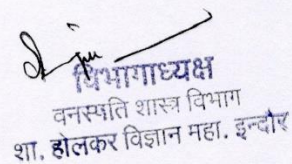 विभागाध्यक्ष
वनस्पति शास्त्र विभाग
शा. होलकर विज्ञान महा. इन्दौर